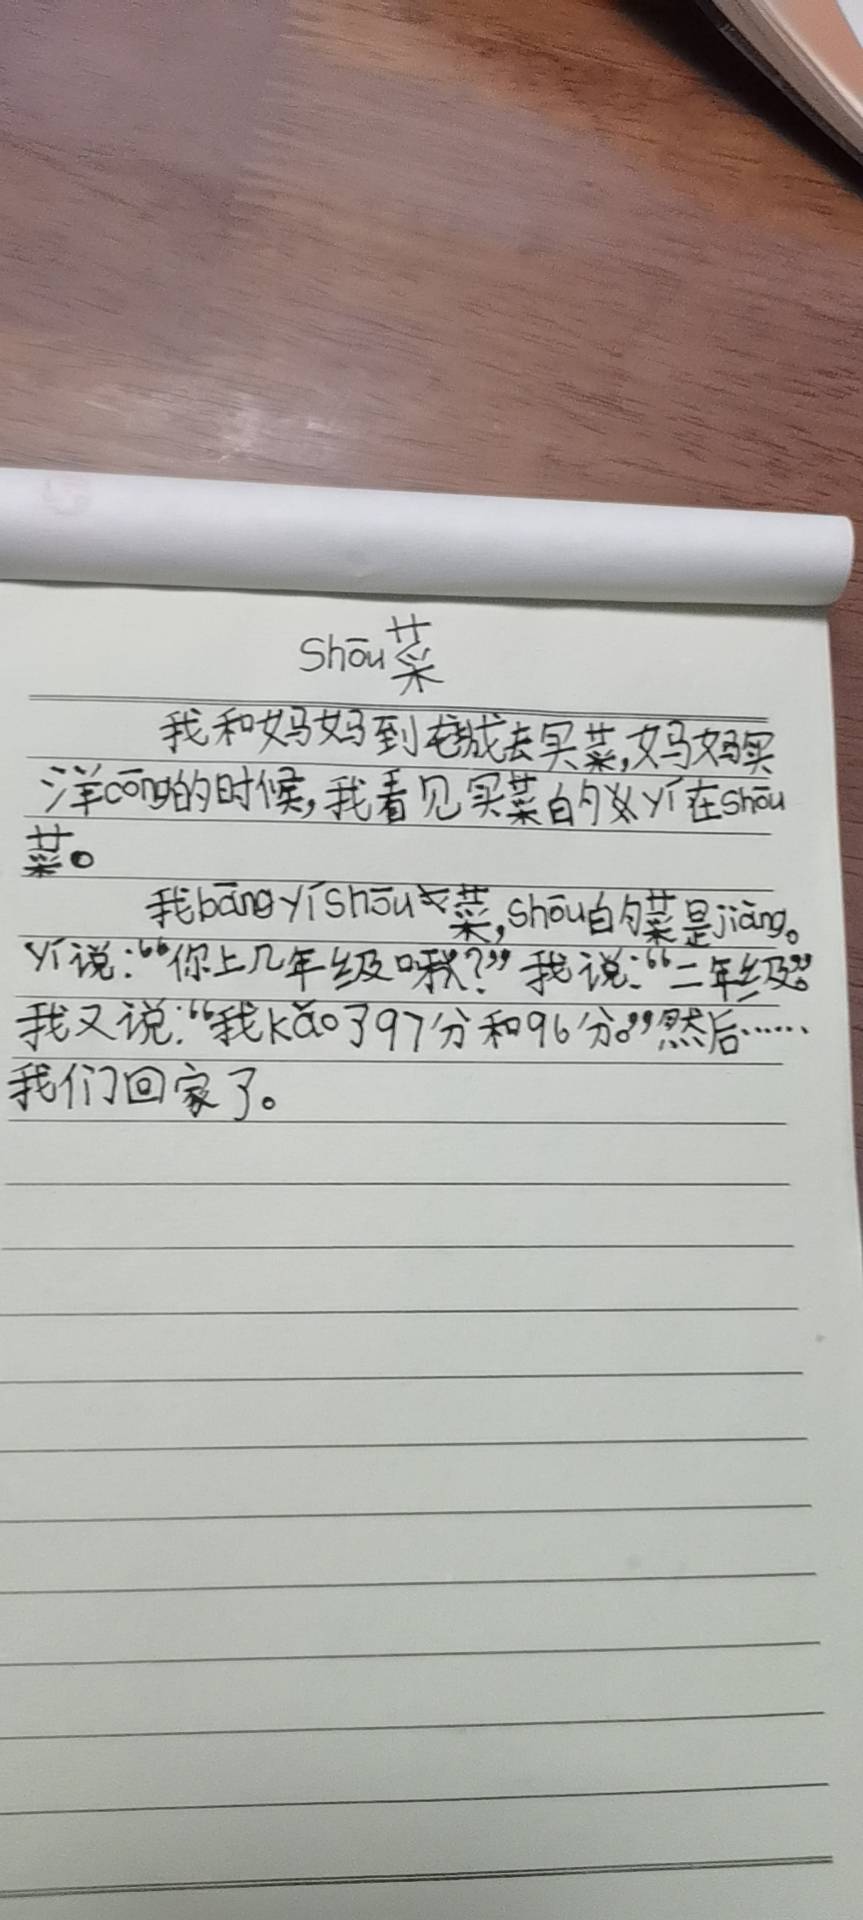 shōu菜
我和妈妈到龙城去买菜,妈妈买
洋cōng的时候,我看见买菜的yí在shōu
菜。
我bāngyíshōu菜,shōu的菜是jiāng。
yí说:“你上几年级啊?”我说:“二年级。”
我又说:“我kǎo了97分和96分。”然后……
我们回家了。